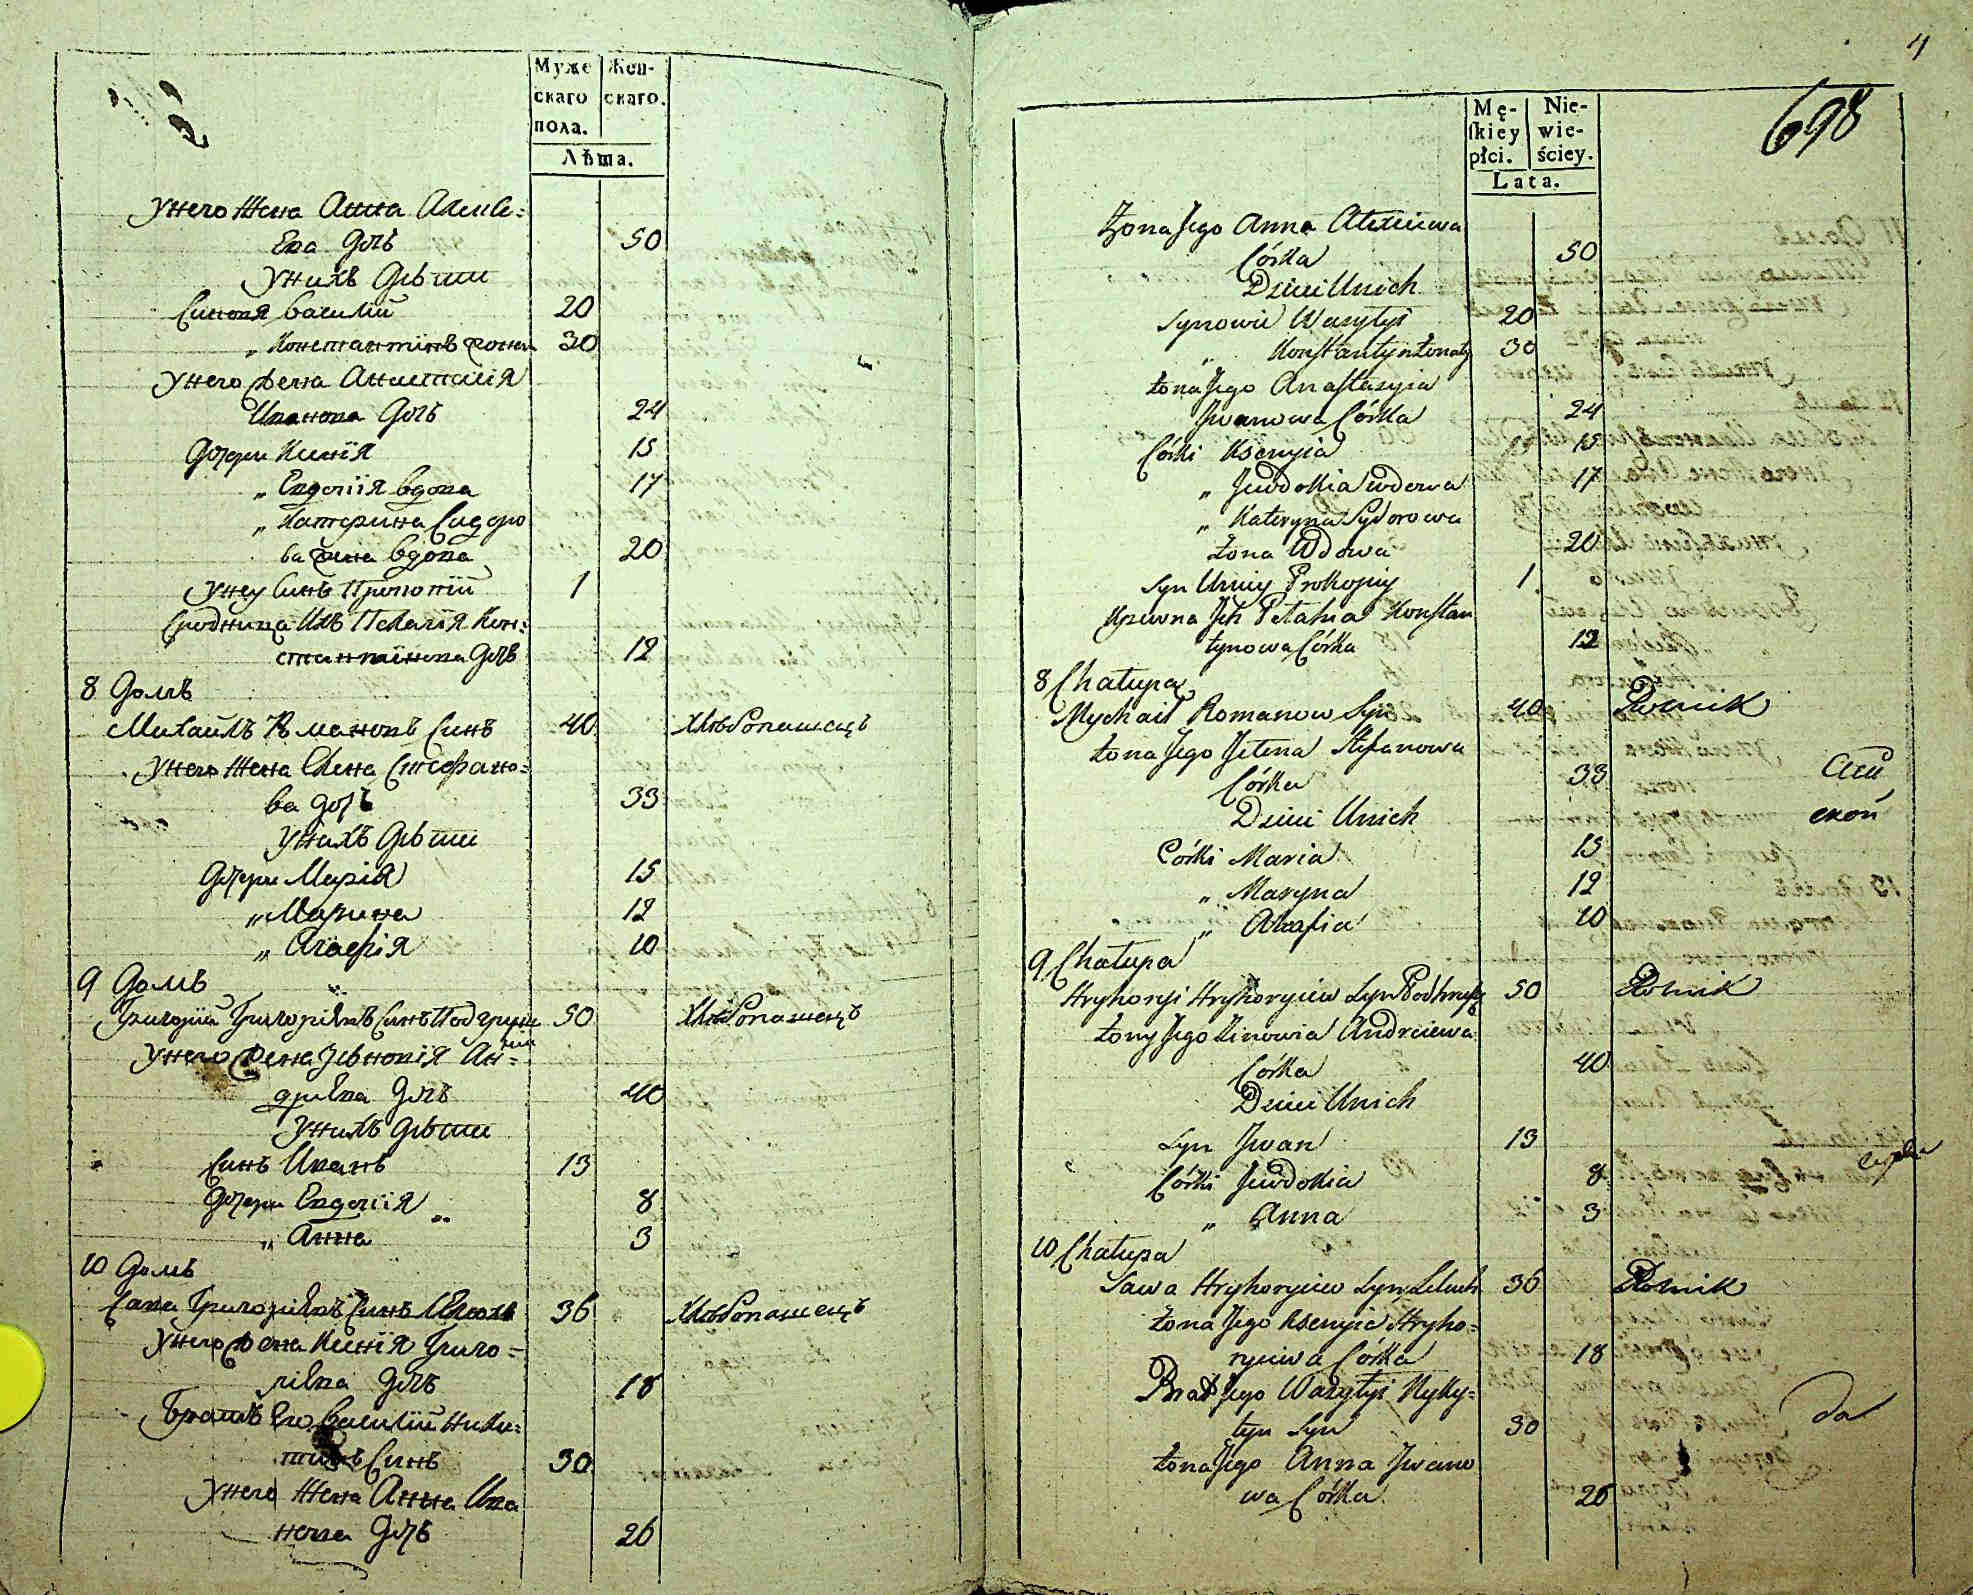 Муже Жен-
скаго скаго.
пола.
Лѣта.
Унего Жена Анна Алексѣ=
Ева Дочъ 50
Унихъ Дѣти
Синовя Василій 20
„ Константінъ жонат 30
Унего Жена Анастасія
Иванова Дочъ 24
Дочери Ксенія 15
„ Евдокія Вдова 17
„ Катерина Сидоро
ва жена Вдова 20
Унеу Синъ Прокопій 1
Сродница Ихъ Пелагія Кон=
стантінова Дочъ 12
8 Домъ
Михаилъ Романовъ Синъ 40 Хлѣбопашецъ
Унего Жена Елена Стефано=
ва дочъ 33
Унихъ Дѣти
Дочери Марія 15
„ Марина 12
„ Агафія 10
9 Домъ
Григорій Григоріевъ Синъ 50 Хлѣбопашецъ
Унего Жена Зѣновія Ан=
дріева Дочъ 40
Унихъ Дѣти
Синъ Иванъ 13
Дочери Евдокія 8
„ Анна 3
10 Домъ
Сава Григоріевъ Синъ 36 Хлѣбопашецъ
Унего Жена Ксенія Григо=
ріева Дочъ 18
Братъ Его Василій Ники=
тинъ Синъ 30
Унего Жена Анна Ива
нова Дочъ 26
4
698
Mę- Nie-
ſkiey wie-
płci. ściey.
Lata.
Żona Jego Anna Alexiiewa
Córka 50
Dzieci Unich
Synowie Wasylyi 20
„ Konstantyn Żonaty 30
Żona Jego Anastasyia
Jwanowa Córka 24
Córki Ksenyia 15
„ Jewdokia wdowa 17
„ Kateryna Sydorowa
Żona Wdowa 20
Syn Uniey Prokopiy 1
Krewna Jch Pelahia Konstan
tynowa Córka 12
8 Chałupa
Mychaił Romanow Syn 40 Rolnik
Żona Jego Jełena Stefanowa
Córka 33
Dzieci Unich
Córki Maria 15
„ Maryna 12
„ Ahafia 10
9 Chałupa
Hryhoryi Hryhoryiew Syn 50 Rolnik
Żony Jego Zinowia Andreiewa
Córka 40
Dzieci Unich
Syn Jwan 13
Córki Jewdokia 8
„ Anna 3
10 Chałupa
Sawa Hryhoryiew Syn 36 Rolnik
Żona Jego Ksenyia Hryho=
ryiewa Córka 18
Brat Jego Wasylyi Nyky=
tyn Syn 30
Żona Jego Anna Jwano
wa Córka 26
ской